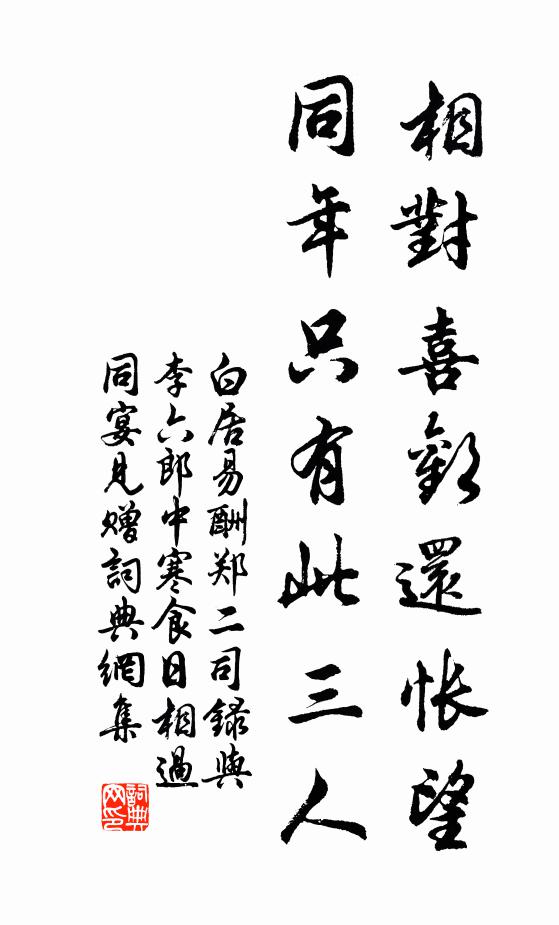 相對喜歡還怅望
同年只有此三人
白居易酬郑二司録與
李六郎中寒食日相過
同宴見赠詞典網集
詞典
网印